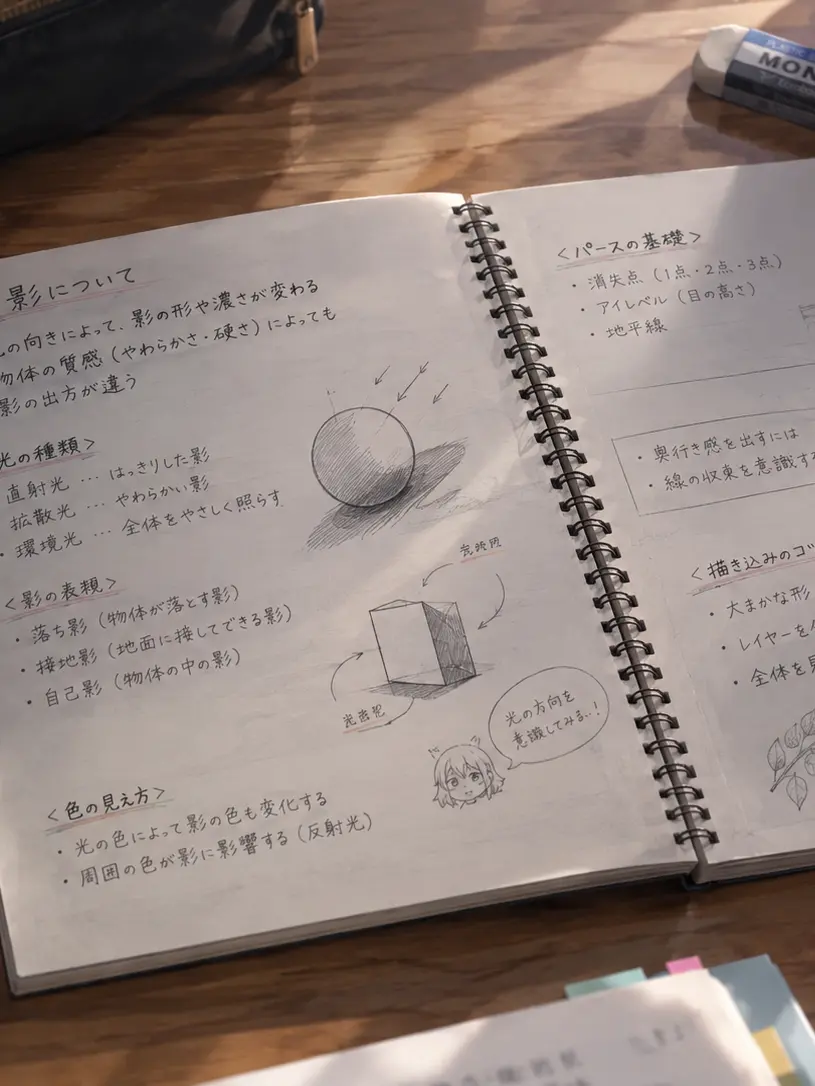 影について
の向きによって、影の形や濃さが変わる
物体の質感（やわらかさ・硬さ）によっても
影の出方が違う
光の種類＞
直射光 … はっきりした影
拡散光 … やわらかい影
・環境光 … 全体をやさしく照らす
＜影の表類＞
・落ち影（物体が落とす影）
・接地影（地面に接してできる影）
・自己影（物体の中の影）
光の方向を
意識してみるぃ！
＜色の見え方＞
・光の色によって影の色も変化する
・周囲の色が影に影響する（反射光）
＜パースの基礎＞
・消失点（1点・2点・3点）
・アイレベル（目の高さ）
・地平線
・奥行き感を出すには
・線の収束を意識する
＜描き込みのコツ
・大まかな形
・レイヤーを
・全体を見
MON